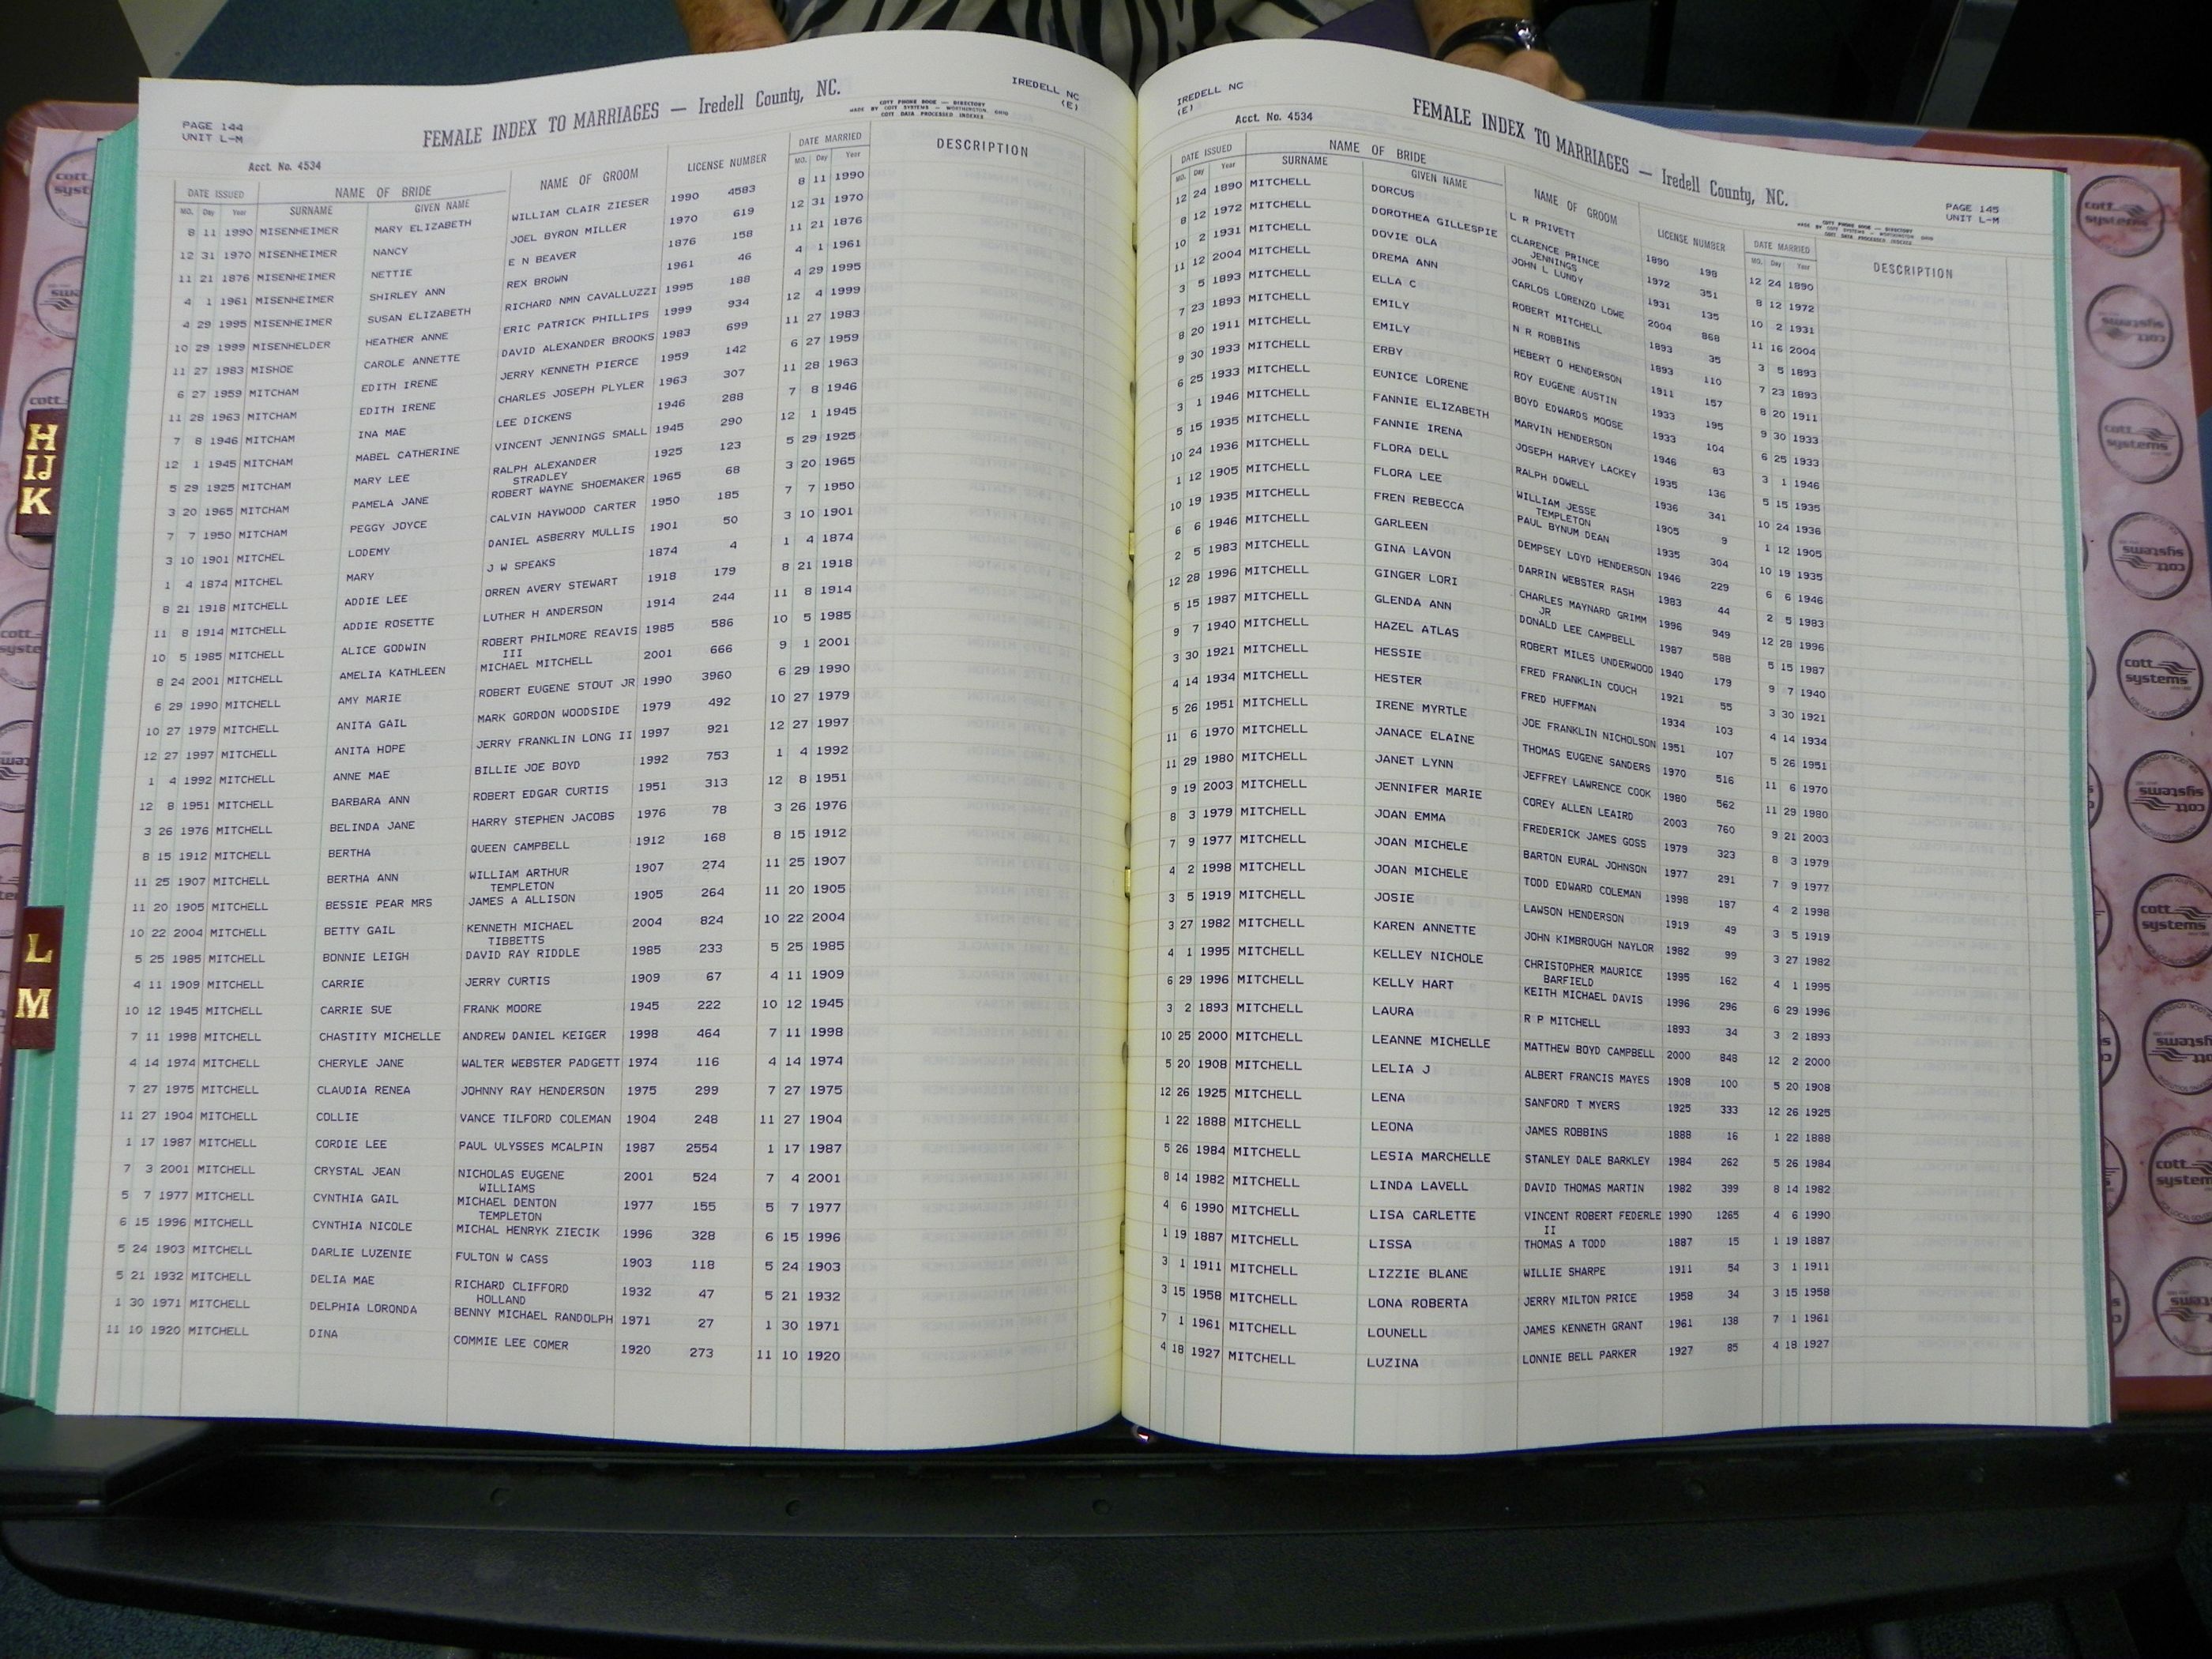 PAGE 144
UNIT L-M
FEMALE INDEX TO MARRIAGES — Iredell County, NC.
MADE BY COTT PHONE BOOK — DIRECTORY
COTT SYSTEMS — WORTHINGTON, OHIO
COTT DATA PROCESSED INDEXES
IREDELL NC
(E)
Acct. No. 4534
DATE ISSUED NAME OF BRIDE NAME OF GROOM LICENSE NUMBER DATE MARRIED DESCRIPTION
MO. Day Year SURNAME GIVEN NAME MO. Day Year
8 11 1990 MISENHEIMER MARY ELIZABETH WILLIAM CLAIR ZIESER 1990 4583 8 11 1990
12 31 1970 MISENHEIMER NANCY JOEL BYRON MILLER 1970 619 12 31 1970
11 21 1876 MISENHEIMER NETTIE E N BEAVER 1876 158 11 21 1876
4 1 1961 MISENHEIMER SHIRLEY ANN REX BROWN 1961 46 4 1 1961
4 29 1995 MISENHEIMER SUSAN ELIZABETH RICHARD NMN CAVALLUZZI 1995 188 4 29 1995
10 29 1999 MISENHELDER HEATHER ANNE ERIC PATRICK PHILLIPS 1999 934 12 4 1999
11 27 1983 MISHOE CAROLE ANNETTE DAVID ALEXANDER BROOKS 1983 699 11 27 1983
6 27 1959 MITCHAM EDITH IRENE JERRY KENNETH PIERCE 1959 142 6 27 1959
11 28 1963 MITCHAM EDITH IRENE CHARLES JOSEPH PLYLER 1963 307 11 28 1963
7 8 1946 MITCHAM INA MAE LEE DICKENS 1946 288 7 8 1946
12 1 1945 MITCHAM MABEL CATHERINE VINCENT JENNINGS SMALL 1945 290 12 1 1945
5 29 1925 MITCHAM MARY LEE RALPH ALEXANDER 1925 123 5 29 1925
STRADLEY
3 20 1965 MITCHAM PAMELA JANE ROBERT WAYNE SHOEMAKER 1965 68 3 20 1965
7 7 1950 MITCHAM PEGGY JOYCE CALVIN HAYWOOD CARTER 1950 185 7 7 1950
3 10 1901 MITCHEL LODEMY DANIEL ASBERRY MULLIS 1901 50 3 10 1901
1 4 1874 MITCHEL MARY J W SPEAKS 1874 4 1 4 1874
8 21 1918 MITCHELL ADDIE LEE ORREN AVERY STEWART 1918 179 8 21 1918
11 8 1914 MITCHELL ADDIE ROSETTE LUTHER H ANDERSON 1914 244 11 8 1914
10 5 1985 MITCHELL ALICE GODWIN ROBERT PHILMORE REAVIS 1985 586 10 5 1985
III
8 24 2001 MITCHELL AMELIA KATHLEEN MICHAEL MITCHELL 2001 666 9 1 2001
6 29 1990 MITCHELL AMY MARIE ROBERT EUGENE STOUT JR 1990 3960 6 29 1990
10 27 1979 MITCHELL ANITA GAIL MARK GORDON WOODSIDE 1979 492 10 27 1979
12 27 1997 MITCHELL ANITA HOPE JERRY FRANKLIN LONG II 1997 921 12 27 1997
1 4 1992 MITCHELL ANNE MAE BILLIE JOE BOYD 1992 753 1 4 1992
12 8 1951 MITCHELL BARBARA ANN ROBERT EDGAR CURTIS 1951 313 12 8 1951
3 26 1976 MITCHELL BELINDA JANE HARRY STEPHEN JACOBS 1976 78 3 26 1976
8 15 1912 MITCHELL BERTHA QUEEN CAMPBELL 1912 168 8 15 1912
11 25 1907 MITCHELL BERTHA ANN WILLIAM ARTHUR 1907 274 11 25 1907
TEMPLETON
11 20 1905 MITCHELL BESSIE PEAR MRS JAMES A ALLISON 1905 264 11 20 1905
10 22 2004 MITCHELL BETTY GAIL KENNETH MICHAEL 2004 824 10 22 2004
TIBBETTS
5 25 1985 MITCHELL BONNIE LEIGH DAVID RAY RIDDLE 1985 233 5 25 1985
4 11 1909 MITCHELL CARRIE JERRY CURTIS 1909 67 4 11 1909
10 12 1945 MITCHELL CARRIE SUE FRANK MOORE 1945 222 10 12 1945
7 11 1998 MITCHELL CHASTITY MICHELLE ANDREW DANIEL KEIGER 1998 464 7 11 1998
4 14 1974 MITCHELL CHERYLE JANE WALTER WEBSTER PADGETT 1974 116 4 14 1974
7 27 1975 MITCHELL CLAUDIA RENEA JOHNNY RAY HENDERSON 1975 299 7 27 1975
11 27 1904 MITCHELL COLLIE VANCE TILFORD COLEMAN 1904 248 11 27 1904
1 17 1987 MITCHELL CORDIE LEE PAUL ULYSSES MCALPIN 1987 2554 1 17 1987
7 3 2001 MITCHELL CRYSTAL JEAN NICHOLAS EUGENE 2001 524 7 4 2001
WILLIAMS
5 7 1977 MITCHELL CYNTHIA GAIL MICHAEL DENTON 1977 155 5 7 1977
TEMPLETON
6 15 1996 MITCHELL CYNTHIA NICOLE MICHAL HENRYK ZIECIK 1996 328 6 15 1996
5 24 1903 MITCHELL DARLIE LUZENIE FULTON W CASS 1903 118 5 24 1903
5 21 1932 MITCHELL DELIA MAE RICHARD CLIFFORD 1932 47 5 21 1932
HOLLAND
1 30 1971 MITCHELL DELPHIA LORONDA BENNY MICHAEL RANDOLPH 1971 27 1 30 1971
11 10 1920 MITCHELL DINA COMMIE LEE COMER 1920 273 11 10 1920
IREDELL NC
(E)
Acct. No. 4534
FEMALE INDEX TO MARRIAGES — Iredell County, NC.
MADE BY COTT PHONE BOOK — DIRECTORY
COTT SYSTEMS — WORTHINGTON, OHIO
COTT DATA PROCESSED INDEXES
PAGE 145
UNIT L-M
DATE ISSUED NAME OF BRIDE NAME OF GROOM LICENSE NUMBER DATE MARRIED DESCRIPTION
MO. Day Year SURNAME GIVEN NAME MO. Day Year
12 24 1890 MITCHELL DORCUS L R PRIVETT 1890 198 12 24 1890
8 12 1972 MITCHELL DOROTHEA GILLESPIE CLARENCE PRINCE 1972 351 8 12 1972
JENNINGS
10 2 1931 MITCHELL DOVIE OLA JOHN L LUNDY 1931 135 10 2 1931
11 12 2004 MITCHELL DREMA ANN CARLOS LORENZO LOWE 2004 868 11 16 2004
3 5 1893 MITCHELL ELLA C ROBERT MITCHELL 1893 35 3 5 1893
7 23 1893 MITCHELL EMILY N R ROBBINS 1893 110 7 23 1893
8 20 1911 MITCHELL EMILY HEBERT O HENDERSON 1911 157 8 20 1911
9 30 1933 MITCHELL ERBY ROY EUGENE AUSTIN 1933 195 9 30 1933
6 25 1933 MITCHELL EUNICE LORENE BOYD EDWARDS MOOSE 1933 104 6 25 1933
3 1 1946 MITCHELL FANNIE ELIZABETH MARVIN HENDERSON 1946 83 3 1 1946
5 15 1935 MITCHELL FANNIE IRENA JOSEPH HARVEY LACKEY 1935 136 5 15 1935
10 24 1936 MITCHELL FLORA DELL RALPH DOWELL 1936 341 10 24 1936
1 12 1905 MITCHELL FLORA LEE WILLIAM JESSE 1905 9 1 12 1905
TEMPLETON
10 19 1935 MITCHELL FREN REBECCA PAUL BYNUM DEAN 1935 304 10 19 1935
6 6 1946 MITCHELL GARLEEN DEMPSEY LOYD HENDERSON 1946 229 6 6 1946
2 5 1983 MITCHELL GINA LAVON DARRIN WEBSTER RASH 1983 44 2 5 1983
12 28 1996 MITCHELL GINGER LORI CHARLES MAYNARD GRIMM 1996 949 12 28 1996
JR
5 15 1987 MITCHELL GLENDA ANN DONALD LEE CAMPBELL 1987 588 5 15 1987
9 7 1940 MITCHELL HAZEL ATLAS ROBERT MILES UNDERWOOD 1940 179 9 7 1940
3 30 1921 MITCHELL HESSIE FRED FRANKLIN COUCH 1921 55 3 30 1921
4 14 1934 MITCHELL HESTER FRED HUFFMAN 1934 103 4 14 1934
5 26 1951 MITCHELL IRENE MYRTLE JOE FRANKLIN NICHOLSON 1951 107 5 26 1951
11 6 1970 MITCHELL JANACE ELAINE THOMAS EUGENE SANDERS 1970 516 11 6 1970
11 29 1980 MITCHELL JANET LYNN JEFFREY LAWRENCE COOK 1980 562 11 29 1980
9 19 2003 MITCHELL JENNIFER MARIE COREY ALLEN LEAIRD 2003 760 9 21 2003
8 3 1979 MITCHELL JOAN EMMA FREDERICK JAMES GOSS 1979 323 8 3 1979
7 9 1977 MITCHELL JOAN MICHELE BARTON EURAL JOHNSON 1977 291 7 9 1977
4 2 1998 MITCHELL JOAN MICHELE TODD EDWARD COLEMAN 1998 187 4 2 1998
3 5 1919 MITCHELL JOSIE LAWSON HENDERSON 1919 49 3 5 1919
3 27 1982 MITCHELL KAREN ANNETTE JOHN KIMBROUGH NAYLOR 1982 99 3 27 1982
4 1 1995 MITCHELL KELLEY NICHOLE CHRISTOPHER MAURICE 1995 162 4 1 1995
BARFIELD
6 29 1996 MITCHELL KELLY HART KEITH MICHAEL DAVIS 1996 296 6 29 1996
3 2 1893 MITCHELL LAURA R P MITCHELL 1893 34 3 2 1893
10 25 2000 MITCHELL LEANNE MICHELLE MATTHEW BOYD CAMPBELL 2000 848 12 2 2000
5 20 1908 MITCHELL LELIA J ALBERT FRANCIS MAYES 1908 100 5 20 1908
12 26 1925 MITCHELL LENA SANFORD T MYERS 1925 333 12 26 1925
1 22 1888 MITCHELL LEONA JAMES ROBBINS 1888 16 1 22 1888
5 26 1984 MITCHELL LESIA MARCHELLE STANLEY DALE BARKLEY 1984 262 5 26 1984
8 14 1982 MITCHELL LINDA LAVELL DAVID THOMAS MARTIN 1982 399 8 14 1982
4 6 1990 MITCHELL LISA CARLETTE VINCENT ROBERT FEDERLE 1990 1265 4 6 1990
II
1 19 1887 MITCHELL LISSA THOMAS A TODD 1887 15 1 19 1887
3 1 1911 MITCHELL LIZZIE BLANE WILLIE SHARPE 1911 54 3 1 1911
3 15 1958 MITCHELL LONA ROBERTA JERRY MILTON PRICE 1958 34 3 15 1958
7 1 1961 MITCHELL LOUNELL JAMES KENNETH GRANT 1961 138 7 1 1961
4 18 1927 MITCHELL LUZINA LONNIE BELL PARKER 1927 85 4 18 1927
H
IJ
K
L
M
cott
systems